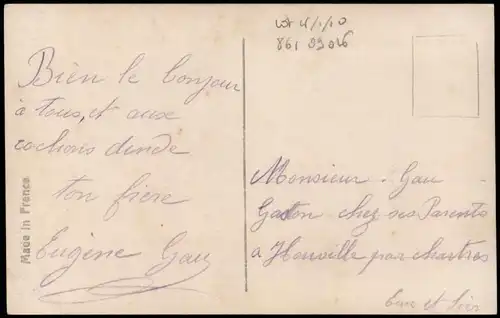 Bien le bonjour
à tous, et aux
cochons dinde
ton frère
Eugène Gau
Made in France
86, 89026
Monsieur Gau
Gaston chez ses Parents
a Houville par chartres
Eure et Loir